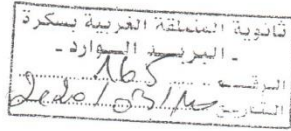 ثانوية المنطقة الغربية بسكرة
- البريد الوارد -
الرقم 165
التاريخ 2020/03/